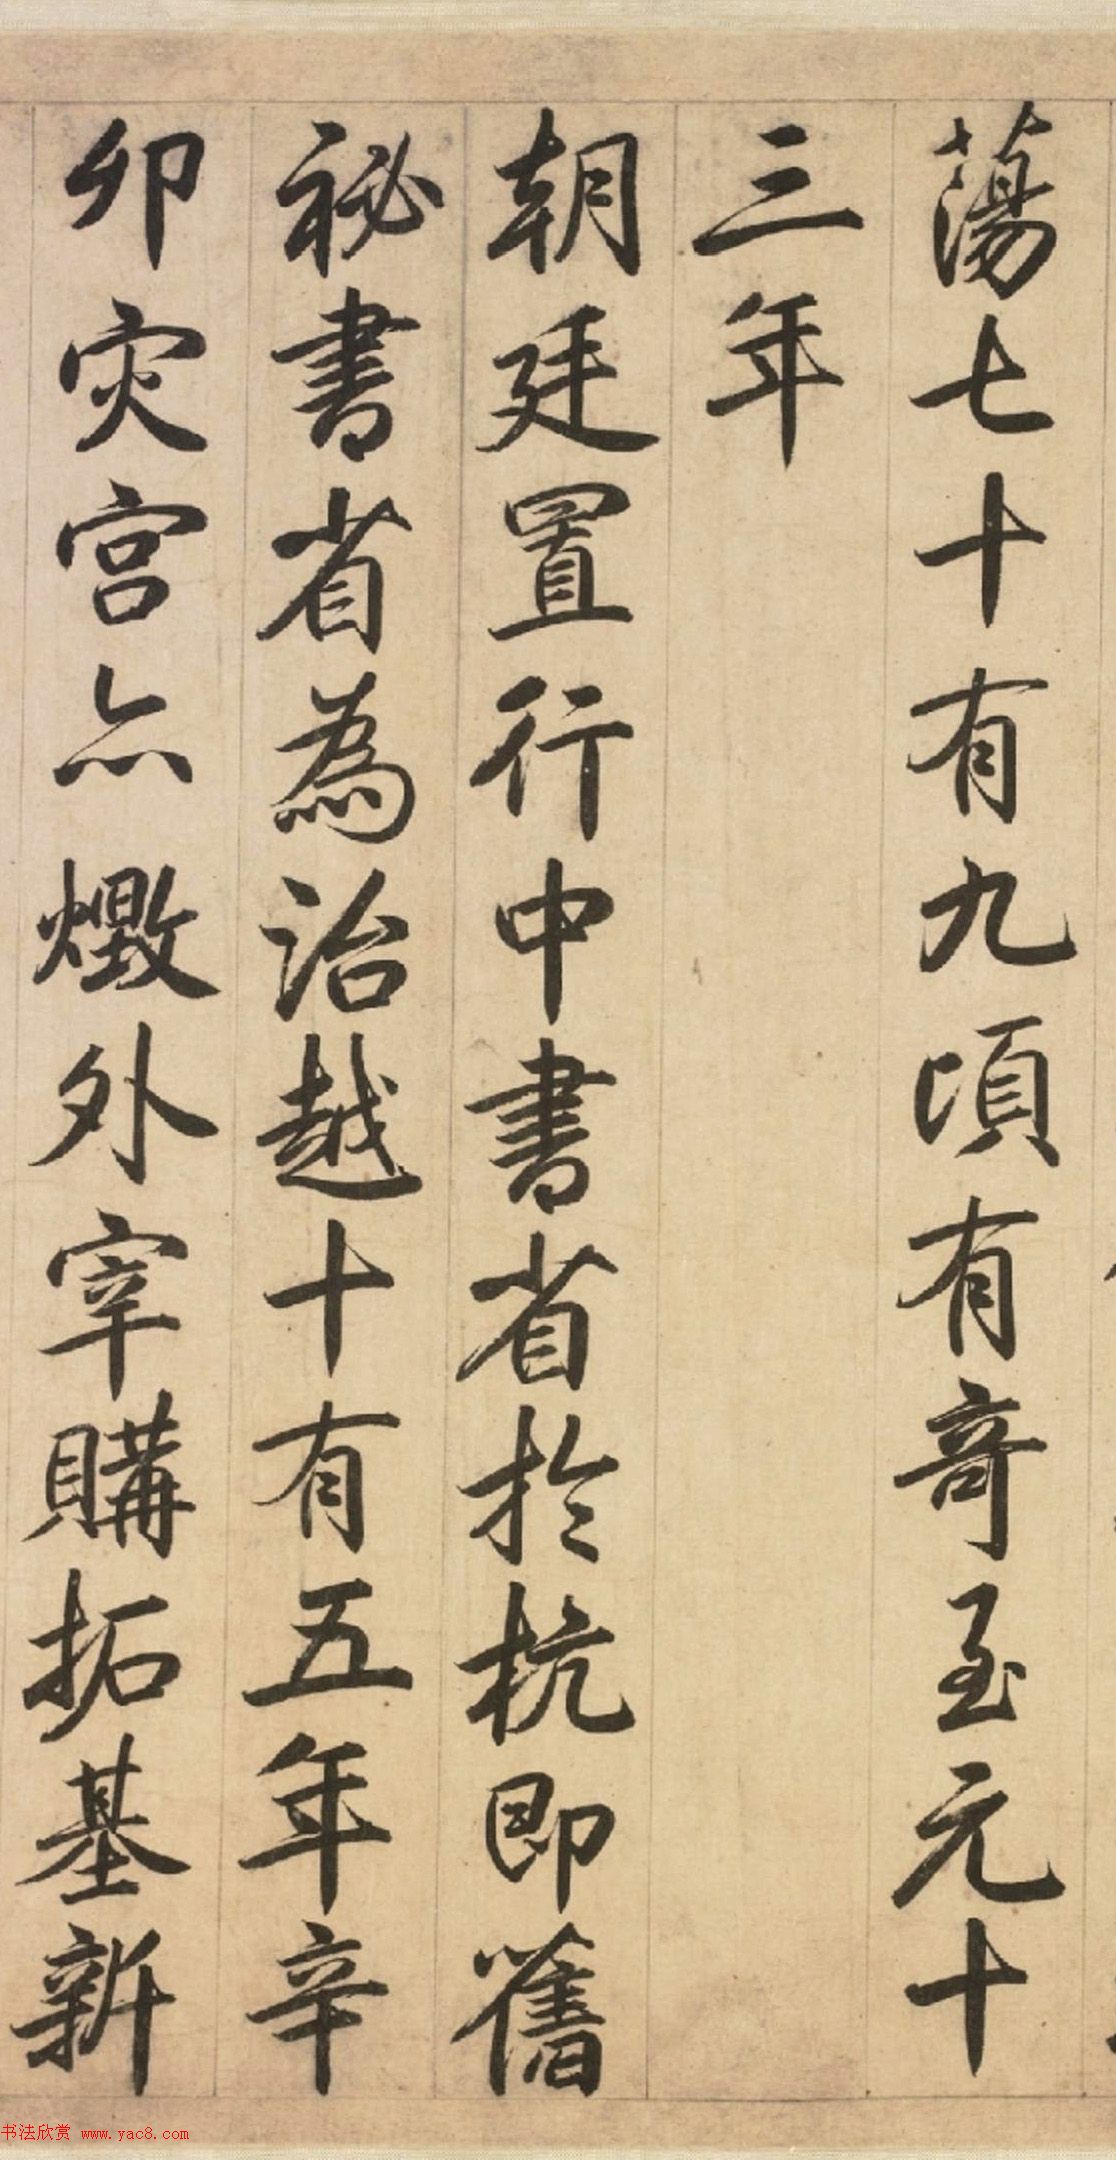 蕩七十有九頃有奇至元十
三年
朝廷置行中書省於杭即舊
秘書省為治越十有五年辛
卯灾宫亦燬外宰購拓基新
书法欣赏 www.yac8.com